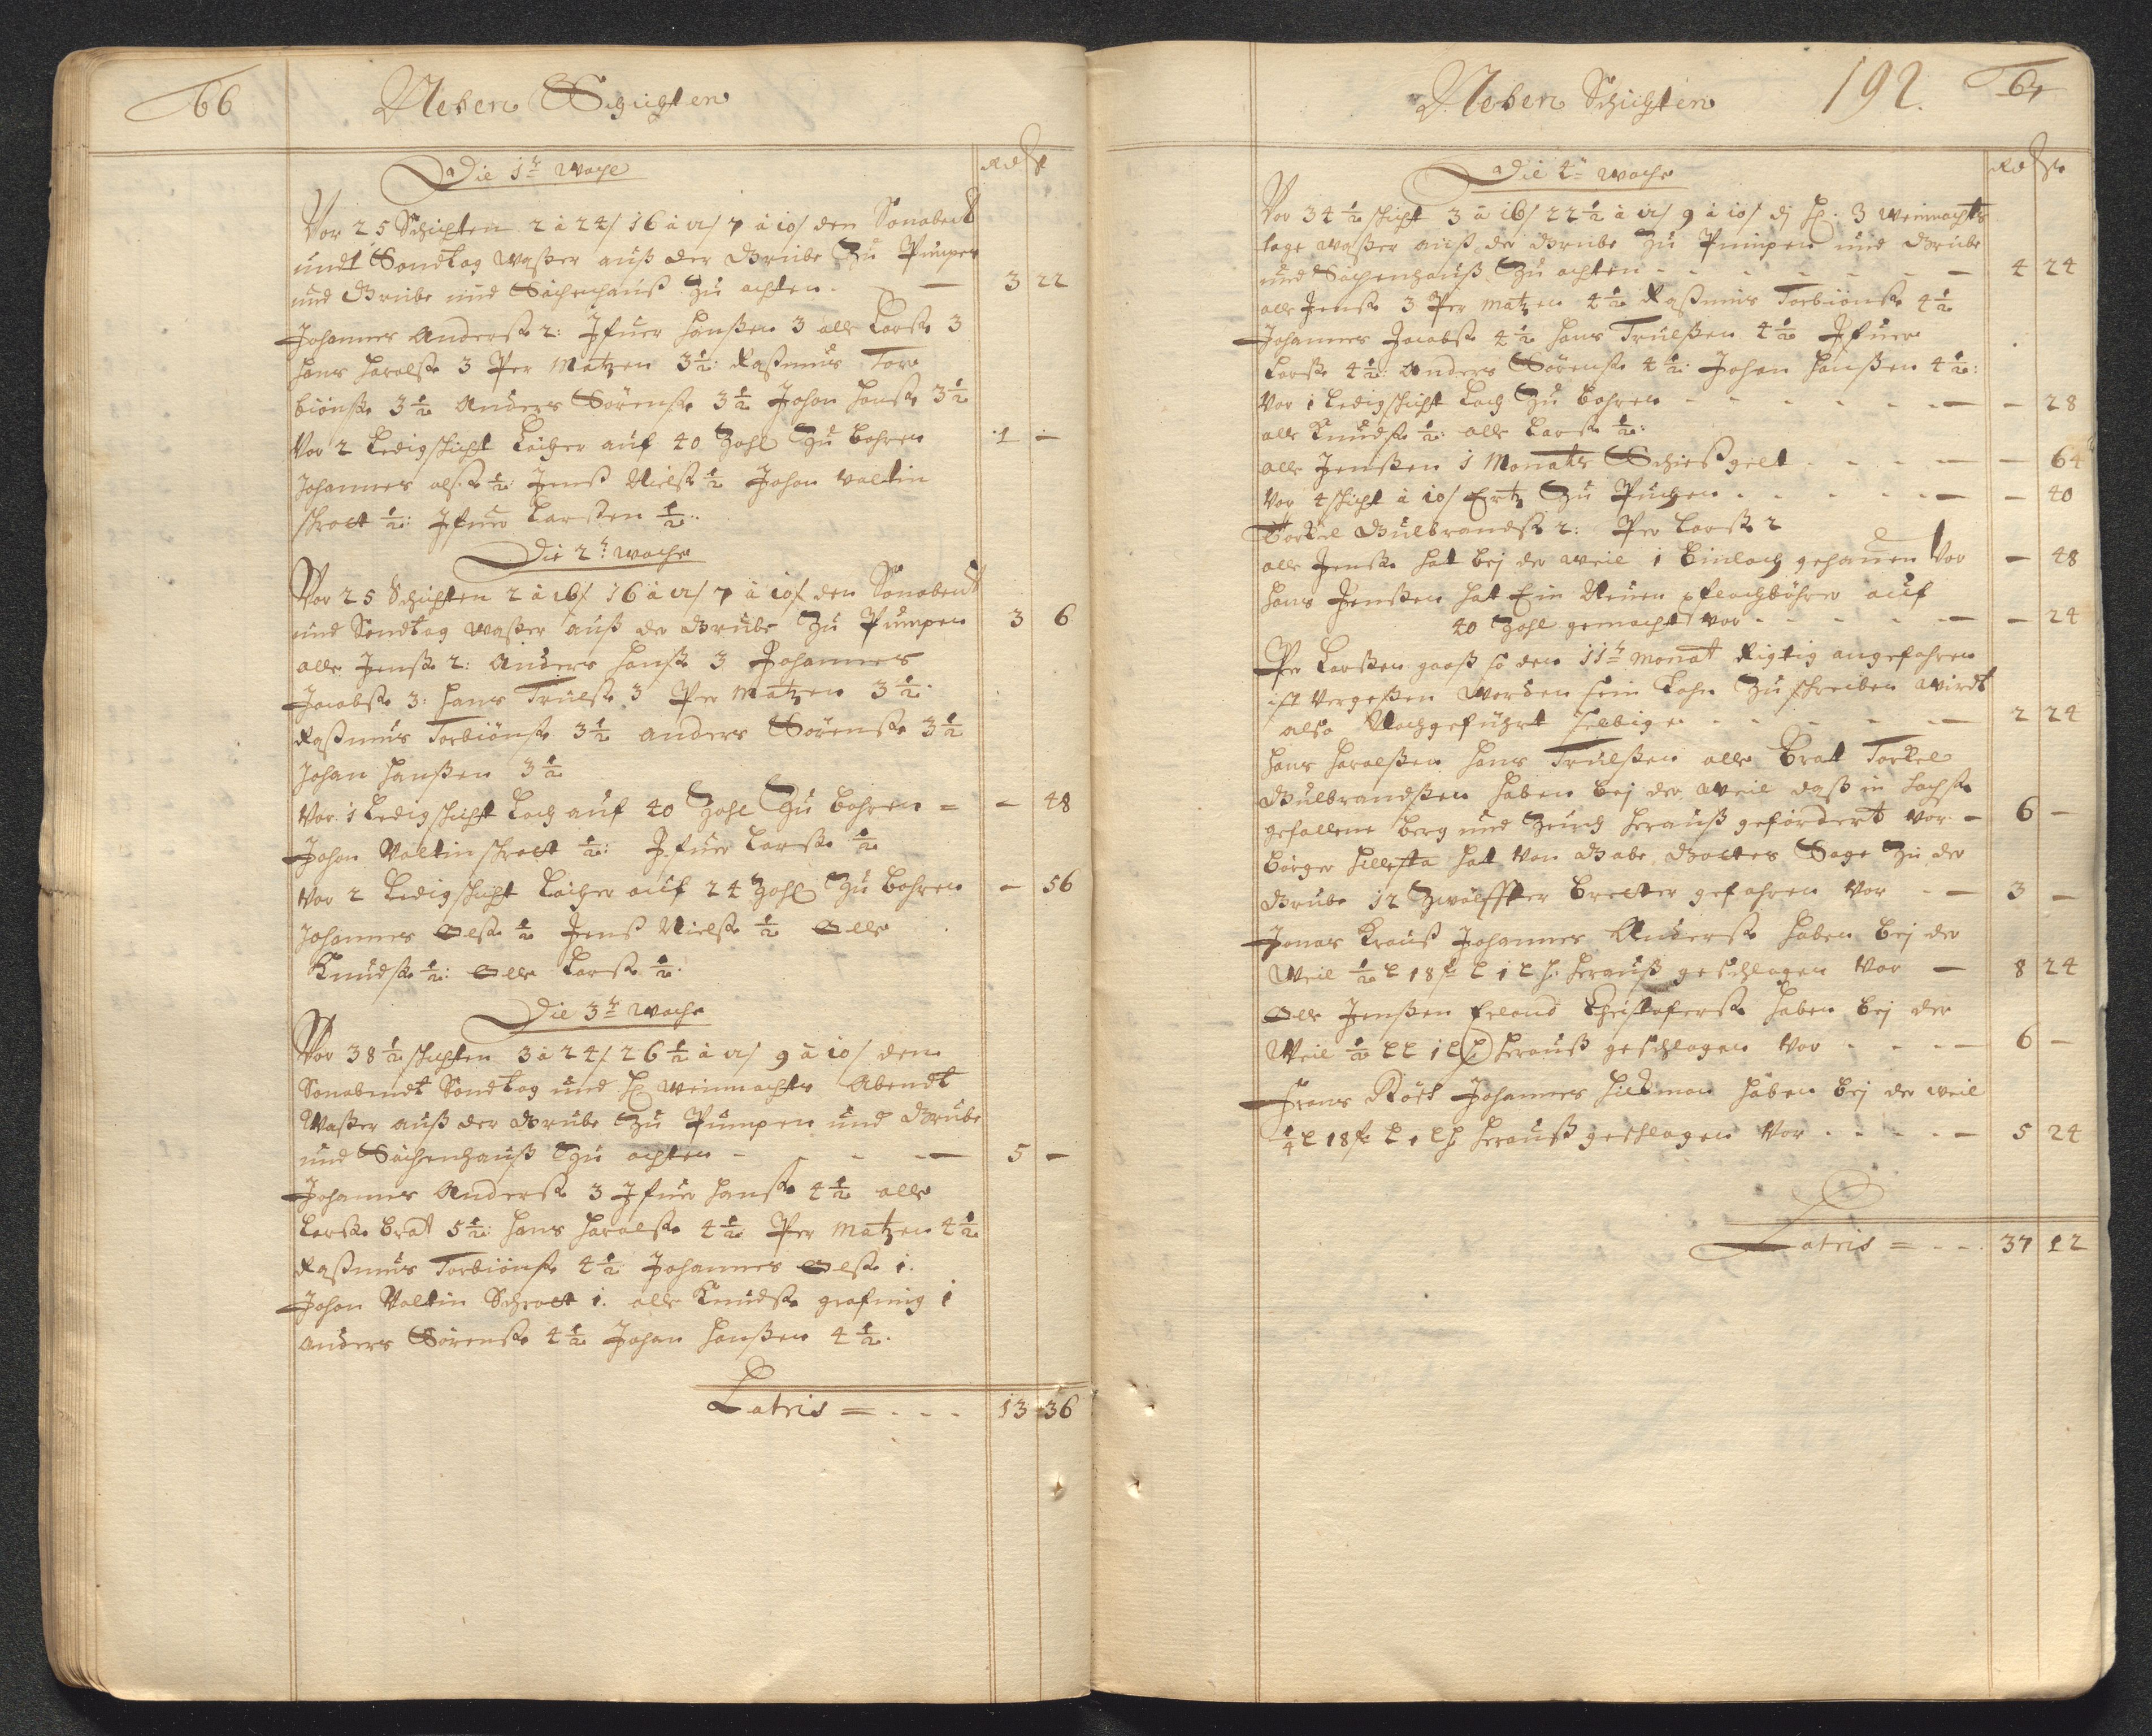 66
Neben Schichten
Rd ß
Die 1te Woche
Vor 25 Schichten 2 à 24/ 16 à 12/ 7 à 10/ den Sonabent
undt Sondtag Waßer auß der Grube Zu Pumpen
und Grube und Sächenhauß Zu achten - - 3 22
Johannes Anderß 2: Ifuer Hanßen 3 olle Larß 3
Hans Harolß 3 Per Matzen 3½: Raßmus Tor
biönß 3½ Anders Sörenß 3½ Johan Hanß 3½
Vor 2 Ledigschicht Löcher auf 40 Zohl Zu bohren 1 -
Johannes olß ½: Jenß Nielß ½ Johan Valtin
schrott ½: Ifuer Larßen ½:
Die 2te Woche
Vor 25 Schichten 2 à 16/ 16 à 12/ 7 à 10/ den Sonabent
und Sondtag Waßer auß der Grube Zu Pumpen 3 6
olle Jenß 2: Anders Hanß 3 Johannes
Jacobß 3: Hans Trulß 3 Per Matzen 3½:
Raßmus Torbiönß 3½ anders Sörenß 3½
Johan Hanßen 3½
Vor 1 Ledigschicht Loch auf 40 Zohl Zu bohren = - 48
Johan Valtin schrott ½: Ifuer Larß ½
Vor 2 Ledigschicht Löcher auf 24 Zohl Zu bohren - 56
Johannes olß ½ Jenß Nielß ½ olle
Knudß ½: olle Larß ½:
Die 3te Woche
Vor 38½ schichten 3 à 24/ 26½ à 12/ 9 à 10/ den
Sonabendt Sondtag und H. Weinnachts Abendt
Waßer auß der Grube Zu Pumpen und Grube
und Sächenhauß Zu achten - - - - 5 -
Johannes Anderß 3 Ifuer Hanß 4½ olle
Larß Brat 5½: Hans Harolß 4½: Per Matzen 4½
Raßmus Torbiönß 4½ Johannes olß 1.
Johan Valtin Schrott 1. olle Knudß 1
anders Sörenß 4½ Johan Hanßen 4½.
Latris = - - - 13 36
Neben Schichten
192.
67
Rd ß
Die 4te Woche
Vor 34½ schicht 3 à 16/ 22½ à 12/ 9 à 10/ di H. 3 Weinnachts
tage Waßer auß der Grube Zu Pumpen und Grube
und Sächenhauß Zu achten - - - - - - 4 24
olle Jenß 3 Per Matzen 4½ Raßmus Torbiönß 4½
Johannes Jacobß 4½ Hans Trulßen 4½ Ifuer
Larß 4½: Anders Sörenß 4½: Johan Hanßen 4½:
Vor 1 Ledigschicht Loch Zu bohren - - - - - - - 28
olle Knudß ½: olle Larß ½:
olle Jenßen 1 Monats Schießgelt - - - - - 64
Vor 4 schicht à 10/ Ertz Zu Puchen - - - - - - 40
Torkel Gulbrandß 2: Per Larß 2
olle Jenß hat bej der Weil 1 gehauen Vor - 48
Hans Jenßen hat Ein Neuen auf
40 Zohl gemacht vor - - - - - - 24
Per Larßen gaaß so den 11te Monat Rigtig angefahren
ist Vergeßen Worden sein Lohn Zu schreiben Wirdt
also Nachgeführt selbige - - - - - 2 24
Hans Harolßen Hans Trulßen olle Brat Torkel
Gulbrandßen haben bej der Weil daß in
gefallene berg und Zeuch herauß gefördert Vor - 6 -
börge Hillesta hat Von Sage Zu der
Grube 12 Zwölffter bretter gefahren Vor - - 3 -
Jonas Krauß Johannes Anderß haben bej der
Weil ½ L 18 L 1 L H. herauß geschlagen Vor - 8 24
olle Jenßen Erland Christoferß haben bej der
Weil ½ L L 1 L H herauß geschlagen Vor - - - - 6 -
Frans Röek Johannes Hickman haben bej der Weil
¼ L 18 L 1 L H herauß geschlagen Vor - - - - 5 24
Latris = - - - 37 12